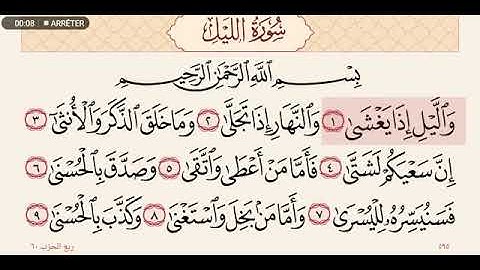 00:08 ■ ARRÊTER
سُورَةُ اللَّيْلِ
بِسْمِ ٱللَّهِ ٱلرَّحْمَٰنِ ٱلرَّحِيمِ
وَٱلَّيْلِ إِذَا يَغْشَىٰ ١ وَٱلنَّهَارِ إِذَا تَجَلَّىٰ ٢ وَمَا خَلَقَ ٱلذَّكَرَ وَٱلْأُنثَىٰٓ ٣
إِنَّ سَعْيَكُمْ لَشَتَّىٰ ٤ فَأَمَّا مَنْ أَعْطَىٰ وَٱتَّقَىٰ ٥ وَصَدَّقَ بِٱلْحُسْنَىٰ ٦
فَسَنُيَسِّرُهُۥ لِلْيُسْرَىٰ ٧ وَأَمَّا مَنۢ بَخِلَ وَٱسْتَغْنَىٰ ٨ وَكَذَّبَ بِٱلْحُسْنَىٰ ٩
٥٩٥ ربع الحزب ٦٠